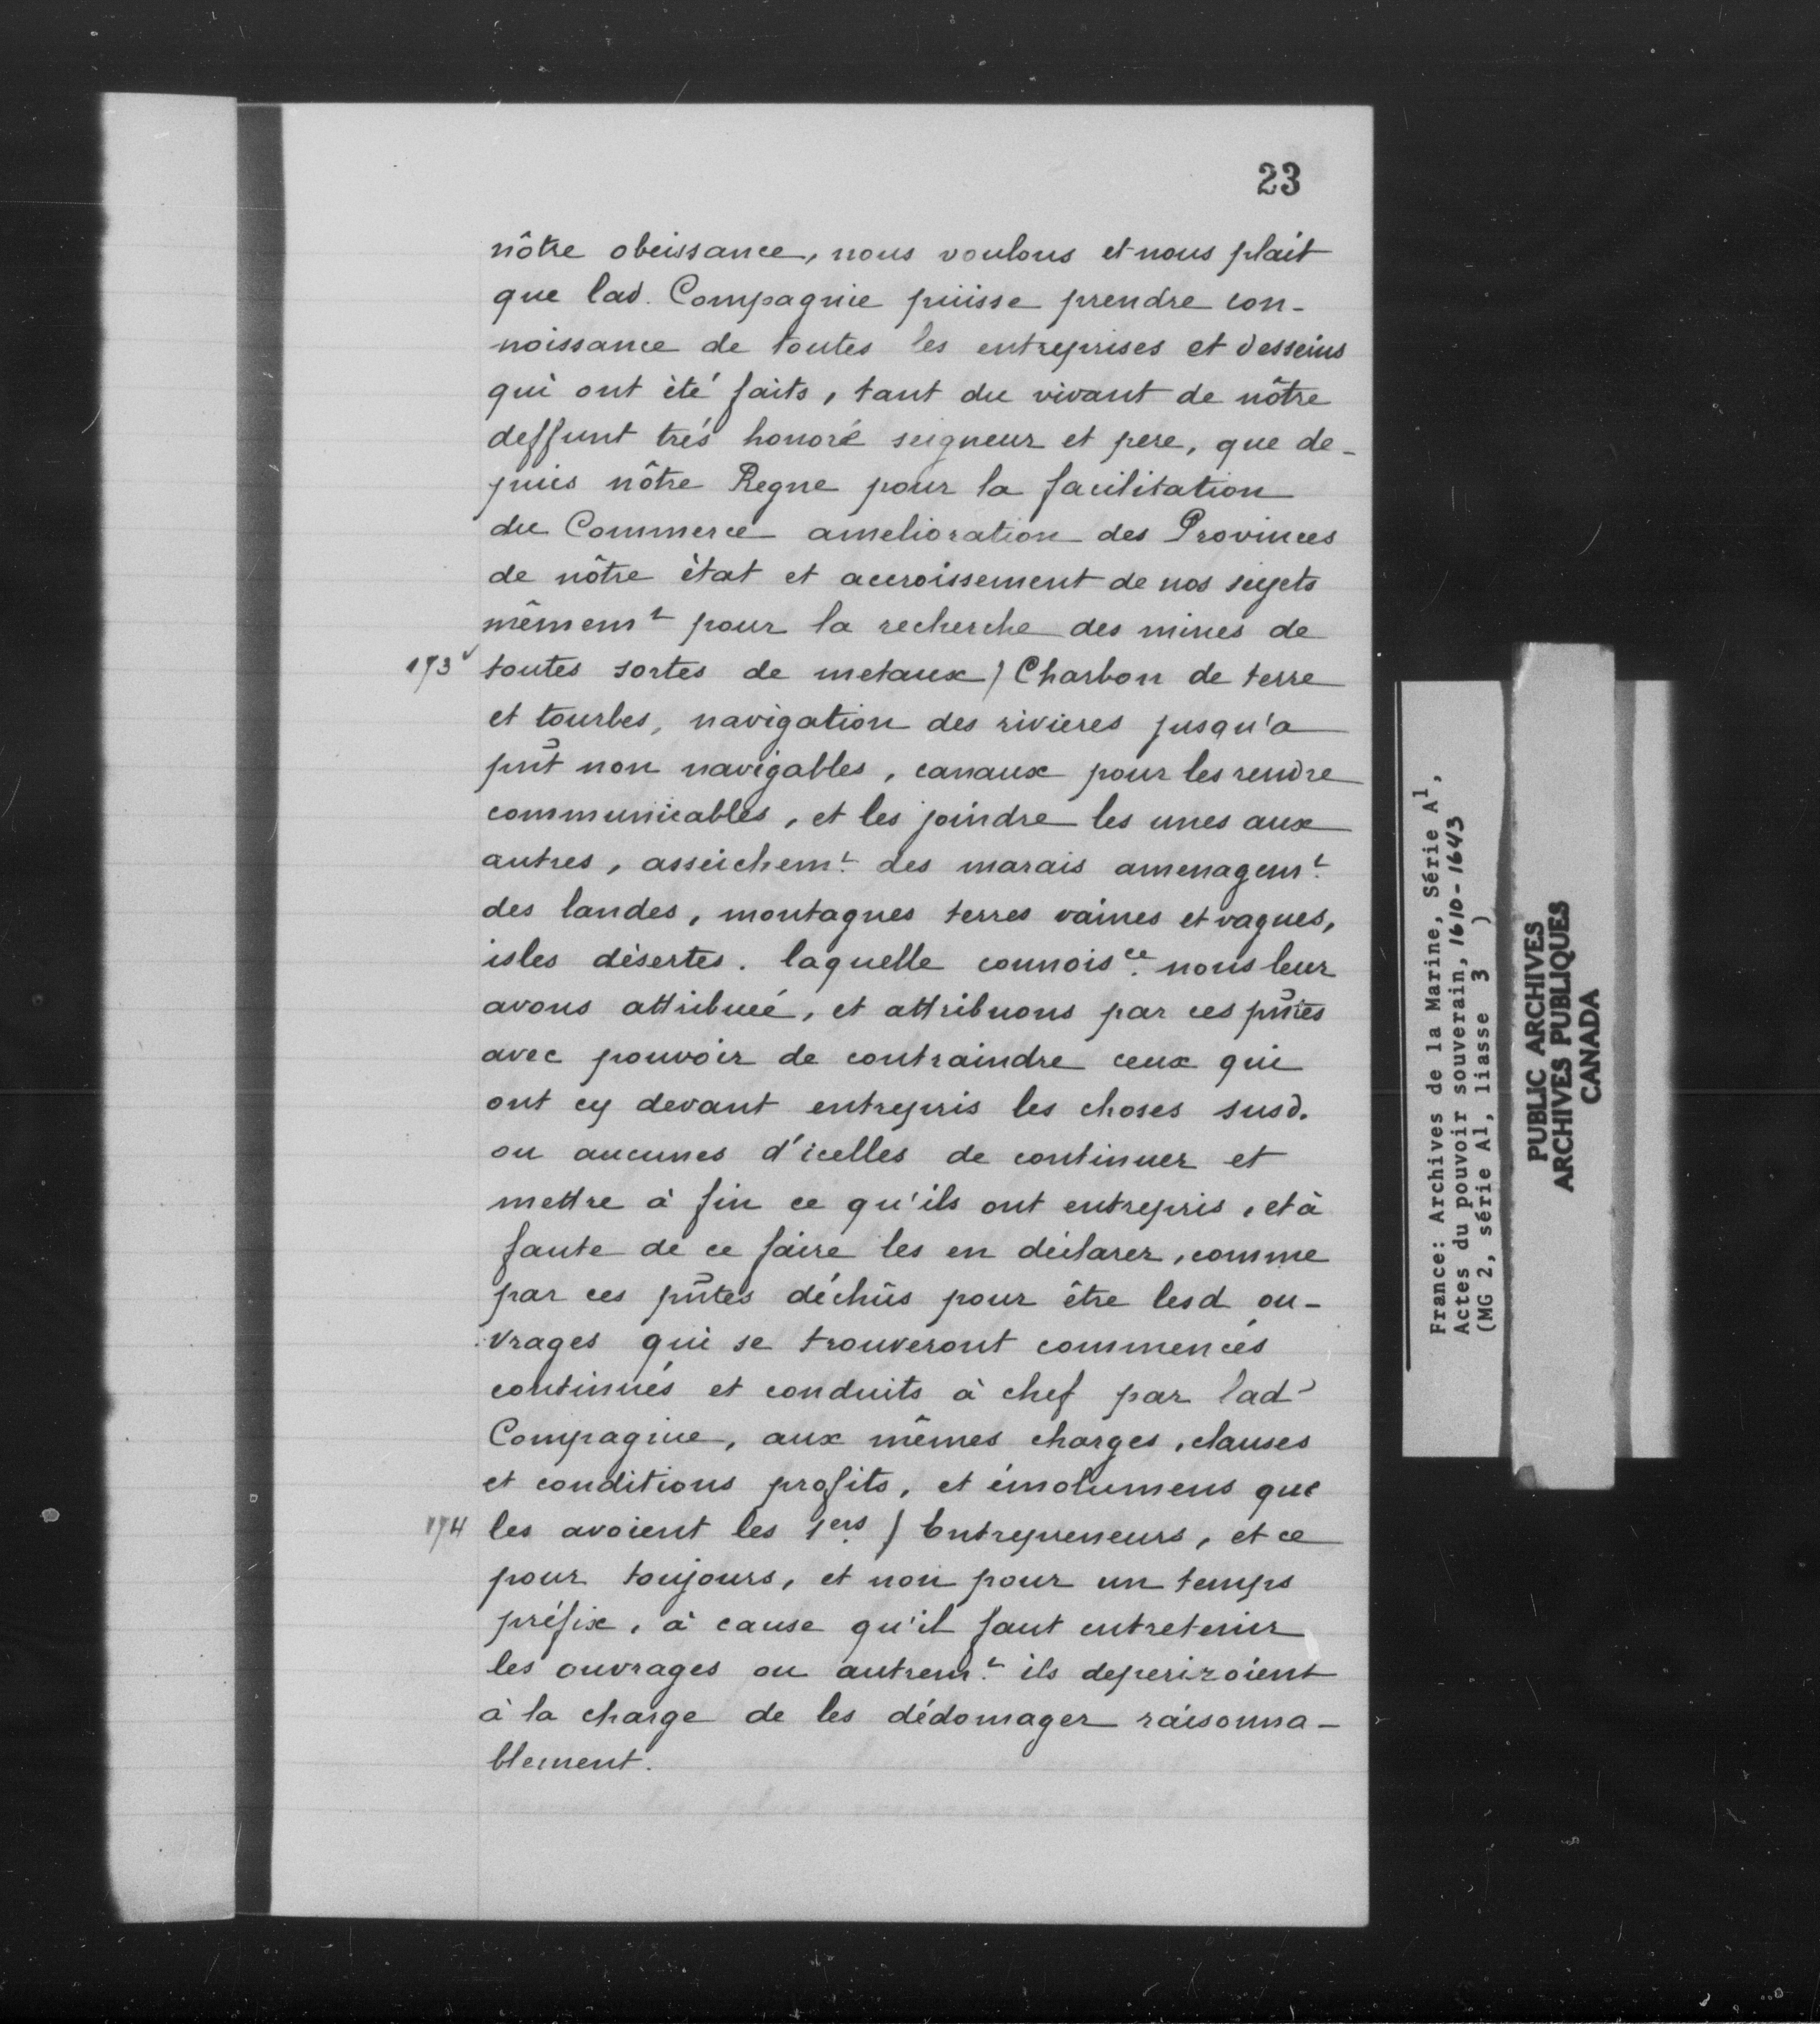 23
nôtre obeissance, nous voulons et nous plait
que lad. Compagnie puisse prendre con-
noissance de toutes les entreprises et desseins
qui ont èté faits, tant du vivant de nôtre
deffunt trés honoré seigneur et pere, que de-
puis nôtre Regne pour la facilitation
du Commerce amelioration des Provinces
de nôtre ètat et accroissement de nos sujets
mêmemt pour la recherche des mines de
173v toutes sortes de metaux / Charbon de terre
et tourbes, navigation des rivieres jusqu'a
pñt non navigables, canaux pour les rendre
communicables, et les joindre les unes aux
autres, asséichemt. des marais amenagemt.
des landes, montagnes terres vaines et vagues,
isles désertes. laquelle connoisce. nous leur
avons attribuée, et attribuons par ces pñtes
avec pouvoir de contraindre ceux qui
ont cy devant entrepris les choses susd.
ou aucunes d'icelles de continuer et
mettre à fin ce qu'ils ont entrepris, et à
faute de ce faire les en déclarer, comme
par ces pñtes déchûs pour être lesd ou-
vrages qui se trouveront commencés
continués et conduits à chef par lad
Compagnie, aux mêmes charges, clauses
et conditions profits, et émolumens que
174 les avoient les 1ers. / Entrepreneurs, et ce
pour toujours, et non pour un temps
préfix, à cause qu'il faut entretenir
les ouvrages ou autremt. ils deperiroient
à la charge de les dédomager raisonna-
blement.
France: Archives de la Marine, Série A1,
Actes du pouvoir souverain, 1610-1643
(MG 2, série A1, liasse 3 )
PUBLIC ARCHIVES
ARCHIVES PUBLIQUES
CANADA